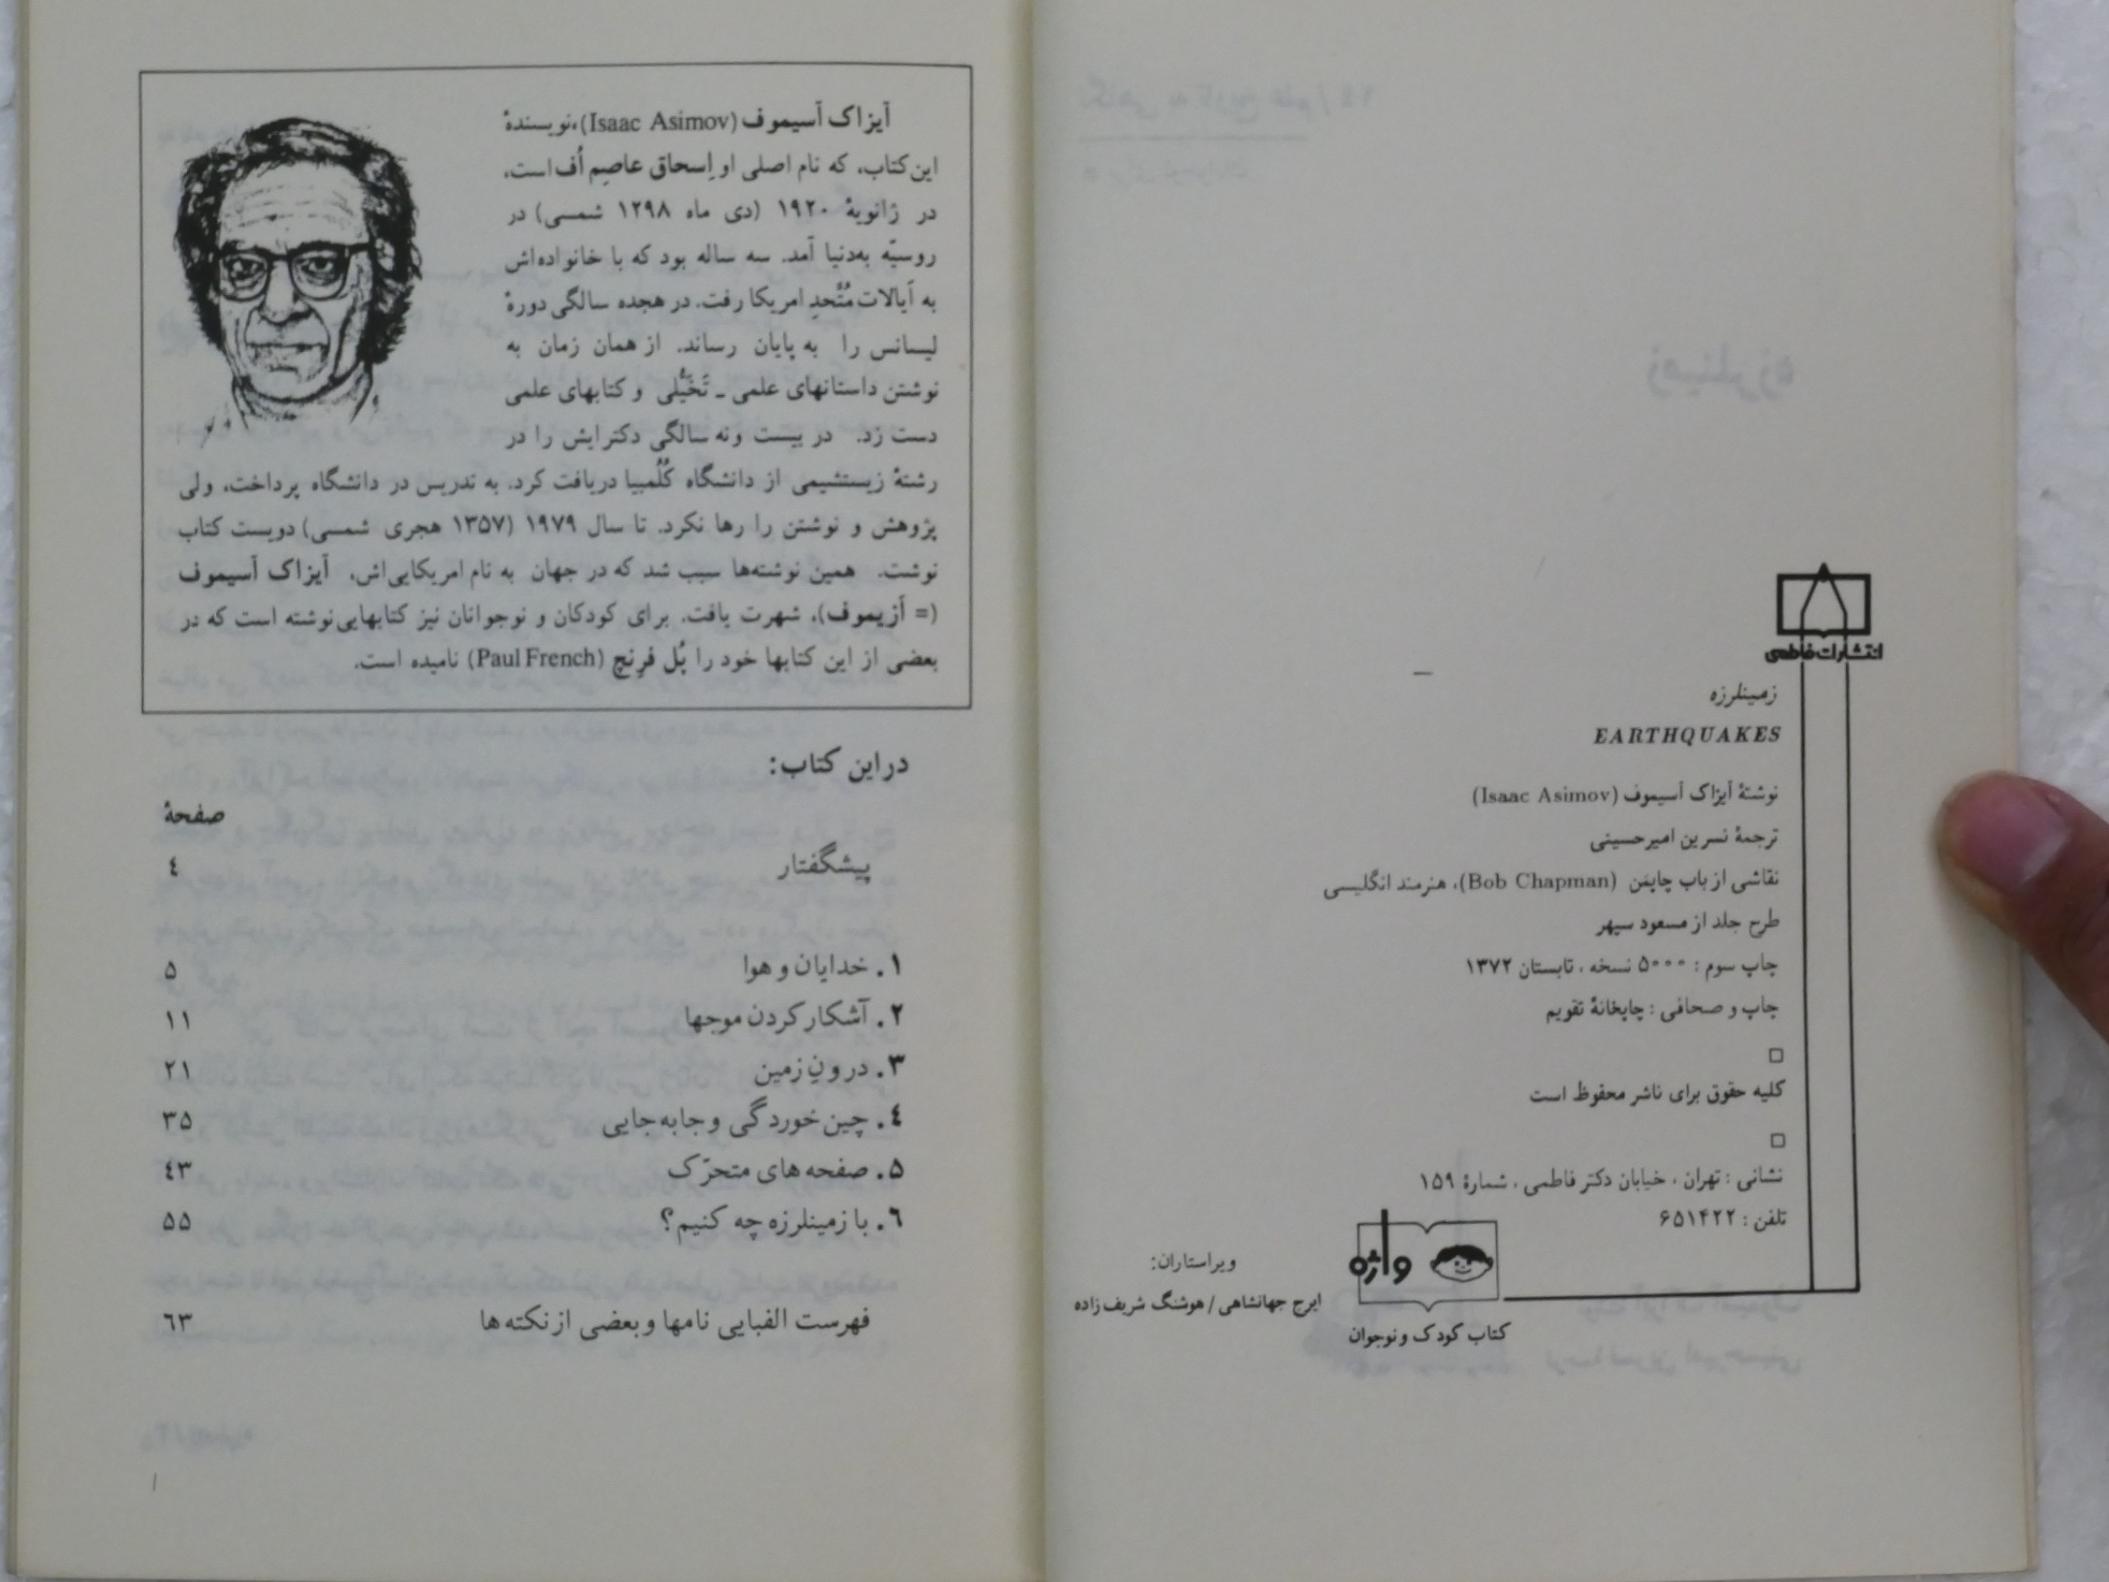 انتشارات فاطمی
زمینلرزه
EARTHQUAKES
نوشتهٔ آیزاک آسیموف (Isaac Asimov)
ترجمهٔ نسرین امیرحسینی
نقاشی از باب چاپمَن (Bob Chapman)، هنرمند انگلیسی
طرح جلد از مسعود سپهر
چاپ سوم : ۵۰۰۰ نسخه ، تابستان ۱۳۷۲
چاپ و صحافی : چاپخانهٔ تقویم
کلیه حقوق برای ناشر محفوظ است
نشانی : تهران ، خیابان دکتر فاطمی ، شمارهٔ ۱۵۹
تلفن : ۶۵۱۴۲۲
واژه
کتاب کودک و نوجوان
ویراستاران:
ایرج جهانشاهی / هوشنگ شریف زاده
آیزاک آسیموف (Isaac Asimov)، نویسندهٔ
این کتاب، که نام اصلی او اِسحاق عاصِم اُف است،
در ژانویهٔ ۱۹۲۰ (دی ماه ۱۲۹۸ شمسی) در
روسیّه به‌دنیا آمد. سه ساله بود که با خانواده‌اش
به اَیالات مُتَّحدِ امریکا رفت. در هجده سالگی دورهٔ
لیسانس را به پایان رساند. از همان زمان به
نوشتن داستانهای علمی ـ تَخَیُّلی و کتابهای علمی
دست زد. در بیست و نه سالگی دکترایش را در
رشتهٔ زیستشیمی از دانشگاه کُلُمبیا دریافت کرد. به تدریس در دانشگاه پرداخت، ولی
پژوهش و نوشتن را رها نکرد. تا سال ۱۹۷۹ (۱۳۵۷ هجری شمسی) دویست کتاب
نوشت. همین نوشته‌ها سبب شد که در جهان به نام امریکایی‌اش، آیزاک آسیموف
(= اَزیموف)، شهرت یافت. برای کودکان و نوجوانان نیز کتابهایی نوشته است که در
بعضی از این کتابها خود را پُل فرِنچ (Paul French) نامیده است.
در این کتاب:
صفحهٔ
پیشگفتار ٤
۱. خدایان و هوا ۵
۲. آشکار کردن موجها ۱۱
۳. درونِ زمین ۲۱
٤. چین خوردگی و جا به جایی ۳۵
۵. صفحه های متحرّک ٤۳
٦. با زمینلرزه چه کنیم؟ ۵۵
فهرست الفبایی نامها و بعضی از نکته ها ٦۳